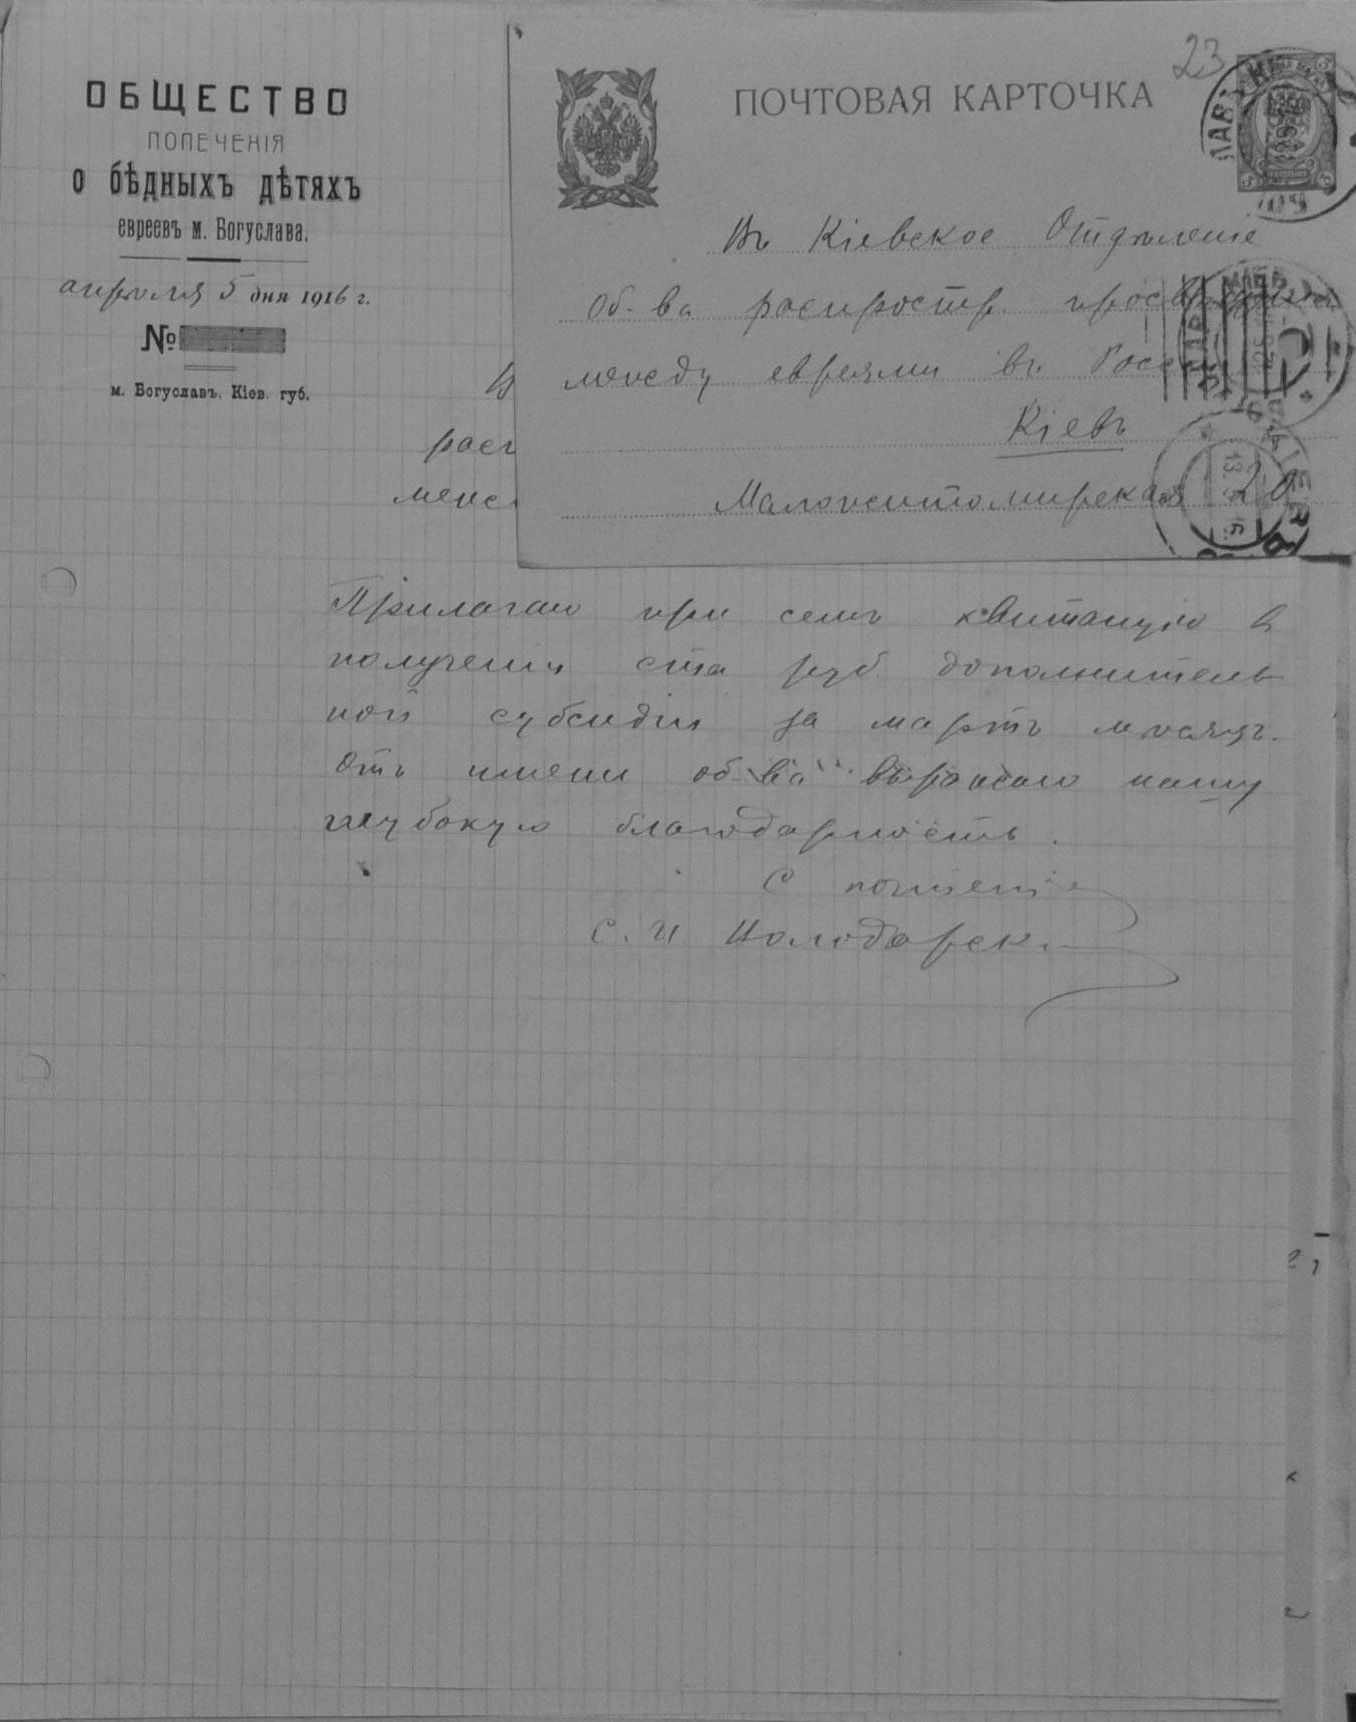 ОБЩЕСТВО
ПОПЕЧЕНІЯ
о бѣдныхъ дѣтяхъ
евреевъ м. Богуслава.
апрѣля 5 дня 1916 г.
№
м. Богуславъ, Кіев. губ.
23
ПОЧТОВАЯ КАРТОЧКА
Въ Кіевское Отдѣленіе
Об-ва распростр. просвѣщенія
между евреями въ Россіи
Кіевъ
Маложитомирская 20
В
расп
меж
Прилагаю при семъ квитанцію в
полученіи ста руб. дополнитель
ной субсидіи за мартъ мѣсяцъ.
Отъ имени об-ва выражаю нашу
глубокую благодарность.
С почтеніе
С. И